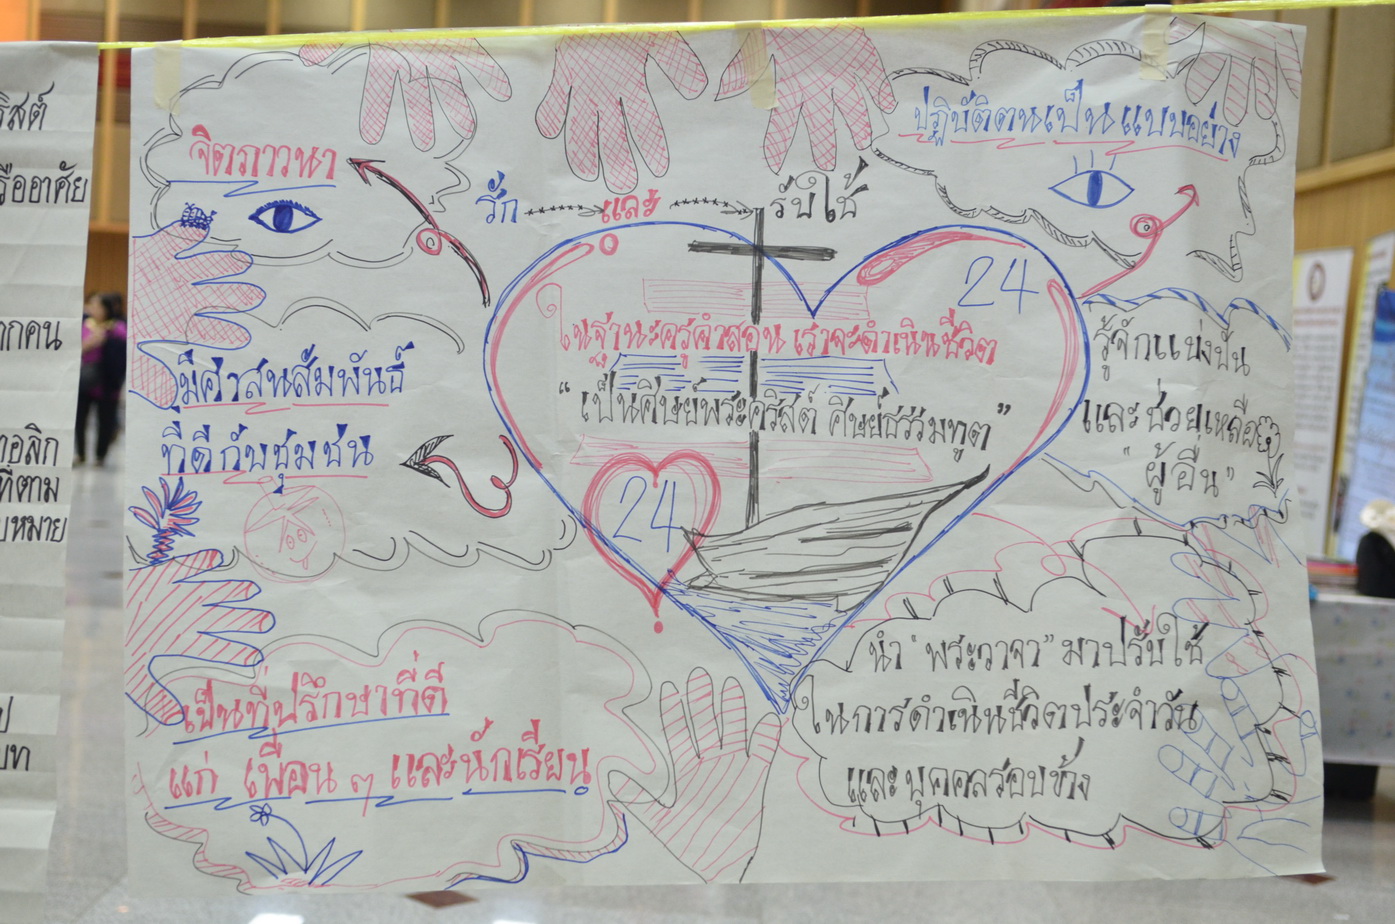 จิตภาวนา
รัก และ รับใช้
ปฏิบัติตนเป็นแบบอย่าง
24
ในฐานะครูคำสอน เราจะดำเนินชีวิต
"เป็นศิษย์พระคริสต์ ศิษย์ธรรมทูต"
24
มีศาสนสัมพันธ์
ที่ดีกับชุมชน
รู้จักแบ่งปัน
และช่วยเหลือ
"ผู้อื่น"
เป็นที่ปรึกษาที่ดี
แก่ เพื่อน ๆ และนักเรียน
นำ "พระวาจา" มาปรับใช้
ในการดำเนินชีวิตประจำวัน
และบุคคลรอบข้าง
ริสต์
รืออาศัย
ากคน
ทอลิก
ที่ตาม
บหมาย